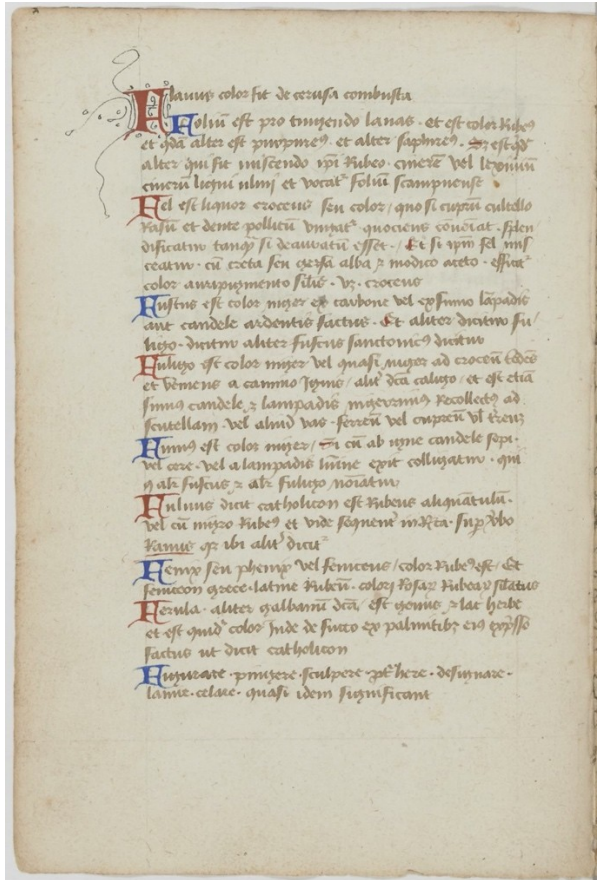 Flavus color fit de cerusa combusta
Foliū est pro tingendo lanas · et est color Rubeꝰ
et qdā alter est purpureꝰ · et alter saphireꝰ · Sz est qd
alter qui fit miscendo ipi Rubeo · cinerem vel lexiuiū
cinerū ligni ulmi et vocatᷣ foliū
Fel est liquor croceus seu color / quo si cuprū cultello
Rasū et dente pollitū ungatᷣ quociens coueniat · splen
dificatur tanqᷓ si deauratū esset · / Et si ipm fel mis
ceatur · cū creta seu gersa alba ⁊ modico aceto · efficitᷣ
color auripigmento silis · vz · croceus
Fustus est color niger ex carbone vel ex fumo lāpadis
aut candele ardentis factus · Et aliter dicitur fu/
ligo · dicitur aliter fuscus dicitur
Fuligo est color niger vel quasi niger ad croceū tēdēs
et veniens a camino Ignis / alit dcā caligo / et est etiā
fumꝰ candele ⁊ lampadis Recollectꝰ ad
scutellam vel aliud vas · ferreū vel cupreū vl
Fumꝰ est color niger / Si cū ab igne candele sepi ·
vel cere · vel a lampadis lumine exit colligatur · qui
⁊ alr fuscus ⁊ alr fuligo noiatur
Fuluus dicit catholicon est Rubeus aliquātulū ·
vel cū nigro Rubeꝰ et vide sequent in Rca · sup vbo
Ramus qz ibi alit dicit
Fenix seu phenix vel feniceus / color Rubeꝰ est / Et
feniceon grece · latine Rubeū · colori Rosarꝝ Rubearꝝ silatus
Ferula · aliter galbanū dcā / est genus ⁊ lac herbe
et est quid color Inde de succo ex palmitibꝫ eiꝰ exp̄sso
factus ut dicit catholicon
Figurare · pingere · sculpere · designare ·
celare · quasi idem significant